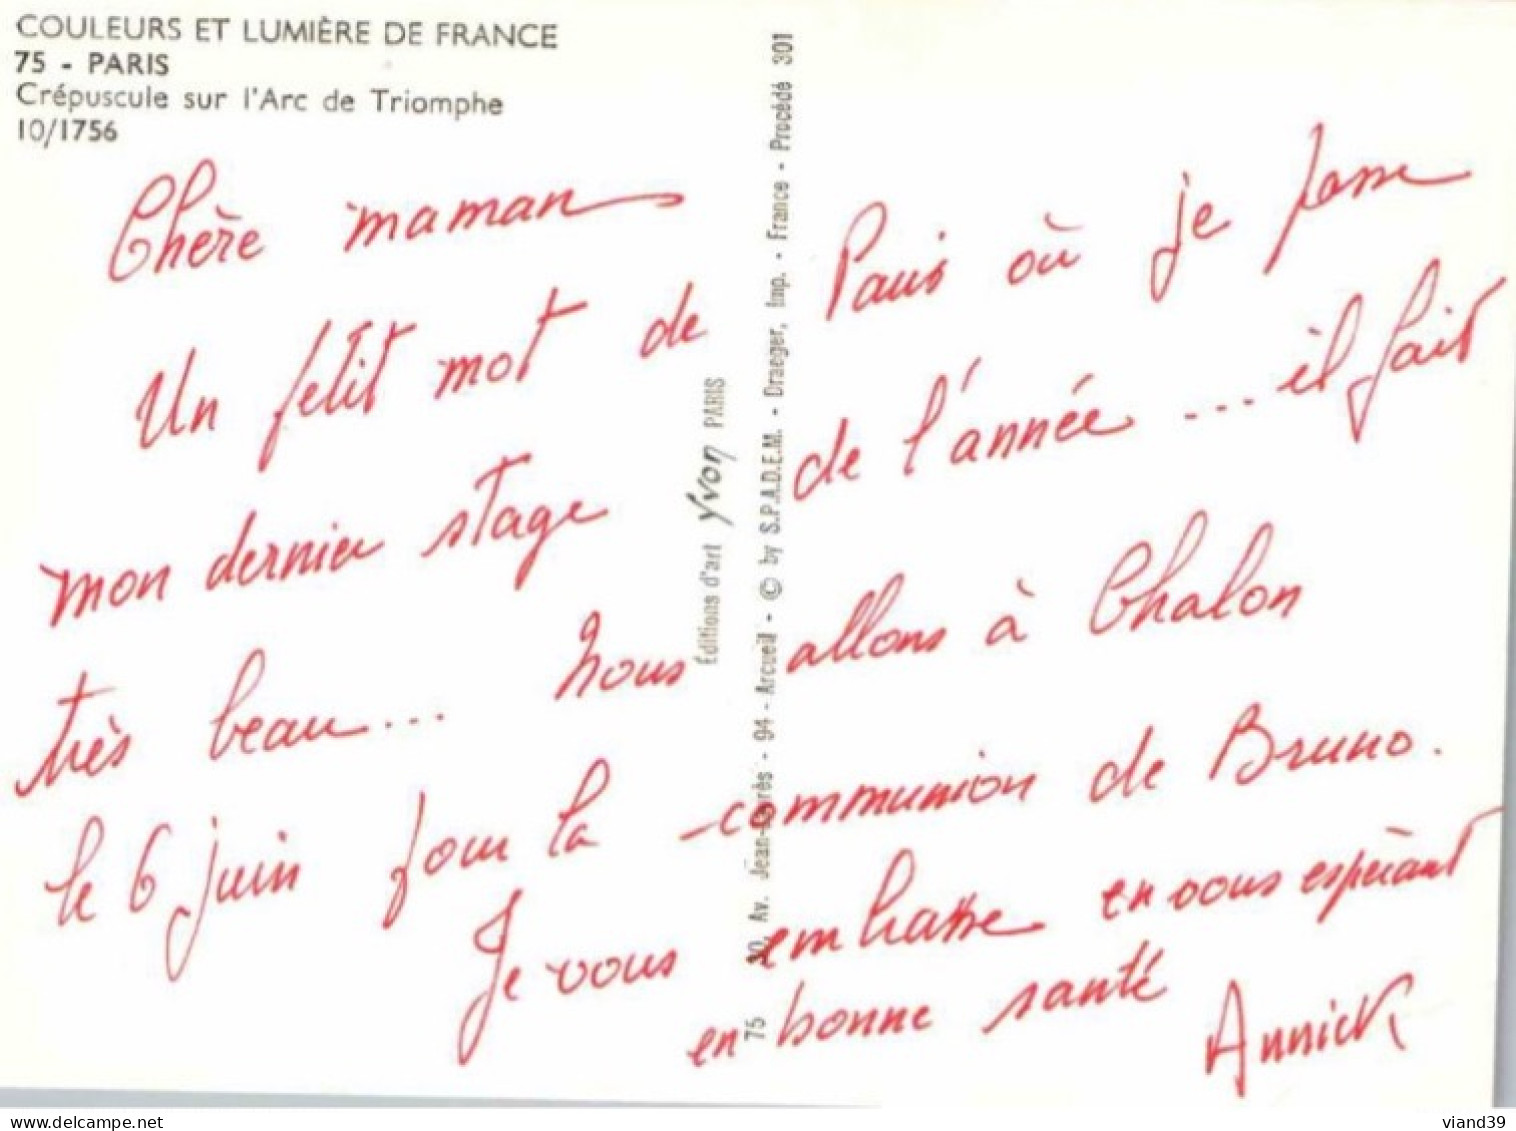 COULEURS ET LUMIÈRE DE FRANCE
75 - PARIS
Crépuscule sur l'Arc de Triomphe
10/1756
Chère maman
Un petit mot de Paris où je passe
mon dernier stage de l'année ... il fait
très beau ... Nous allons à Chalon
le 6 juin pour la communion de Bruno.
Je vous embrasse en vous espérant
en bonne santé
Annick
Éditions d'art Yvon PARIS
75 30, Av. Jean-Jaurès - 94 - Arcueil - © by S.P.A.D.E.M. - Draeger, Imp. - France - Procédé 301
delcampe.net
viand39